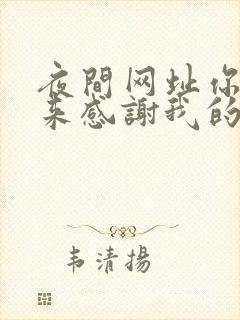 夜間网址你
来感謝我的
韦清揚